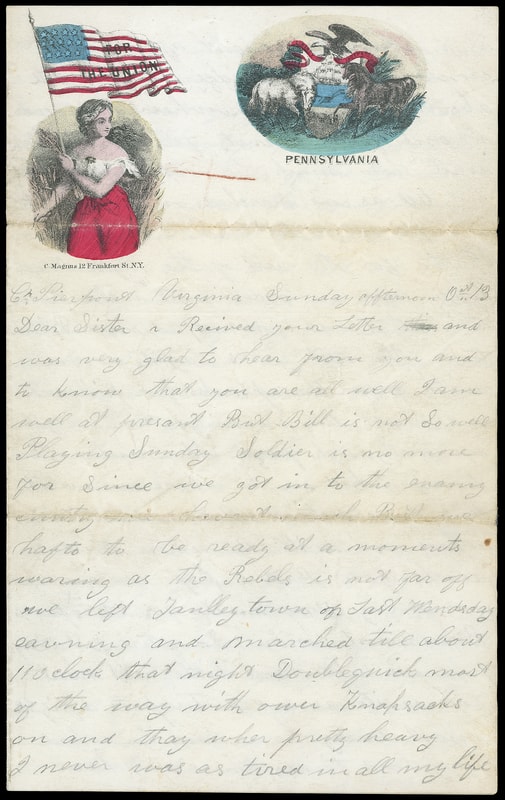 FOR
THE UNION
PENNSYLVANIA
C. Magnus 12 Frankfort St. N.Y.
Cp Pierpont Virginia Sunday afternoon Oct 13
Dear Sister i Recived your Letter and
was very glad to hear from you and
to know that you are all well I am
well at presant But Bill is not So well
Playing Sunday Soldier is no more
for Since we got in to the enamy
But we
hafto to be ready at a moments
waring as the Rebels is not far off
we left Tanlleytown on Last Wendsday
eavning and marched till about
11 oclock that night Doublequick most
of the way with ower Knapsacks
on and thay wher pretty heavy
I never was as tired in all my life